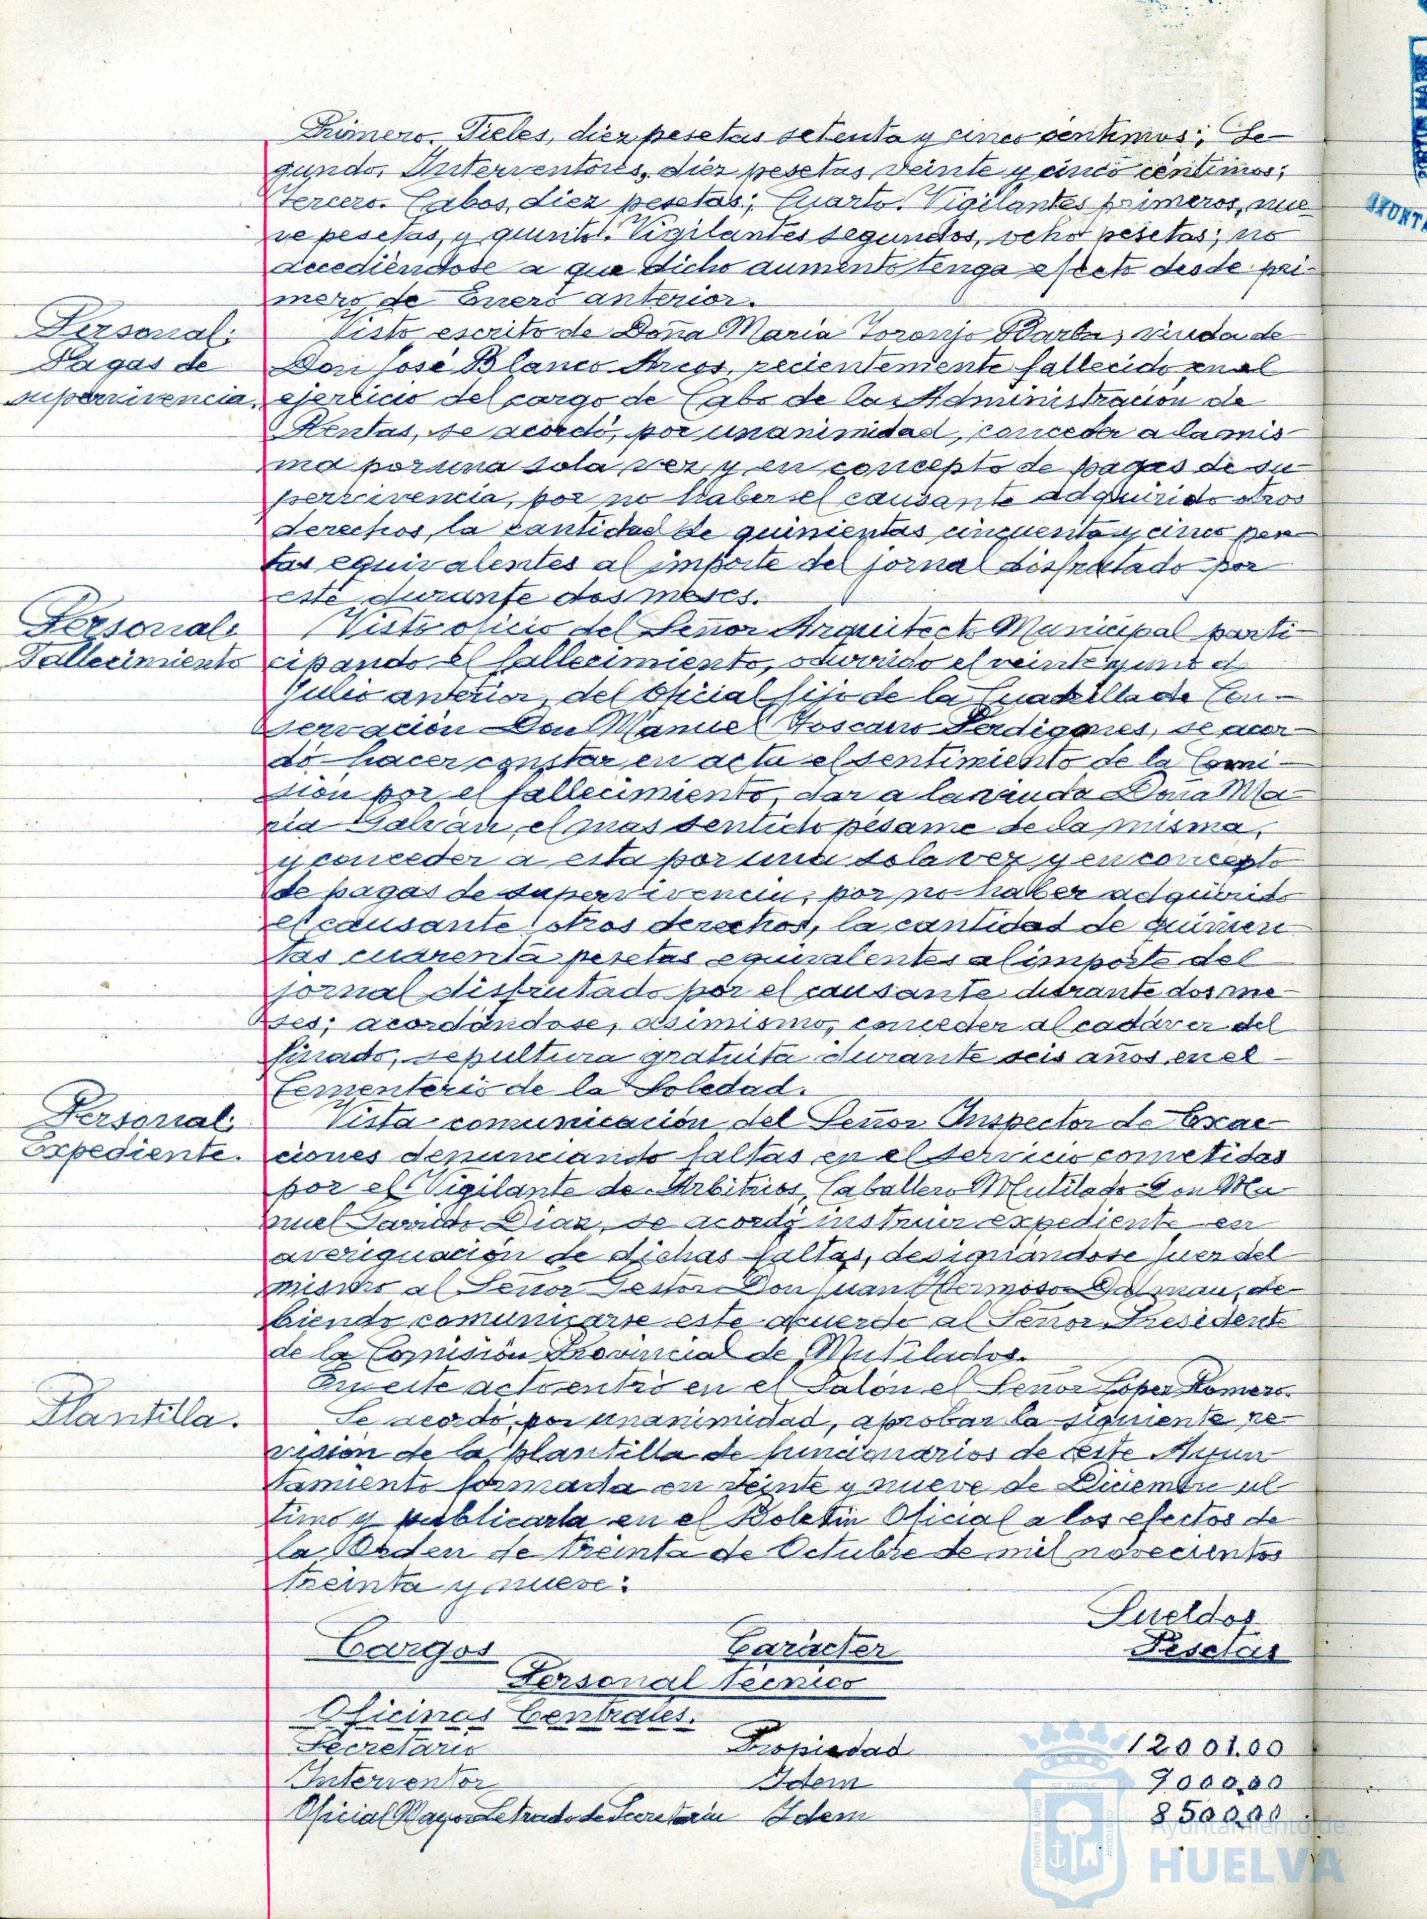 Primero. Fieles, diez pesetas setenta y cinco céntimos; Se-
gundo. Interventores, diez pesetas veinte y cinco céntimos;
Tercero. Cabos, diez pesetas; Cuarto. Vigilantes primeros, nue-
ve pesetas, y quinto. Vigilantes segundos, ocho pesetas; no
accediéndose a que dicho aumento tenga efecto desde pri-
mero de Enero anterior.
Personal:
Pagas de
supervivencia.
Visto escrito de Doña María Toronjo Barba, viuda de
Don José Blanco Arcos, recientemente fallecido en el
ejercicio del cargo de Cabo de la Administración de
Rentas, se acordó, por unanimidad, conceder a la mis-
ma por una sola vez y en concepto de pagas de su-
pervivencia, por no haber el causante adquirido otros
derechos, la cantidad de quinientas cincuenta y cinco pese-
tas equivalentes al importe del jornal disfrutado por
este durante dos meses.
Personal:
Fallecimiento
Visto oficio del Señor Arquitecto Municipal parti-
cipando el fallecimiento, ocurrido el veinte y uno de
Julio anterior, del Oficial fijo de la Cuadrilla de Con-
servación Don Manuel Toscano Perdigones, se acor-
dó hacer constar en acta el sentimiento de la Comi-
sión por el fallecimiento, dar a la viuda Doña Ma-
ria Galván, el mas sentido pésame de la misma,
y conceder a esta por una sola vez y en concepto
de pagas de supervivencia, por no haber adquirido
el causante otros derechos, la cantidad de quinien
tas cuarenta pesetas equivalentes al importe del
jornal disfrutado por el causante durante dos me-
ses; acordándose, asimismo, conceder al cadáver del
finado, sepultura gratuita durante seis años en el
Cementerio de la Soledad.
Personal:
Expediente.
Vista comunicación del Señor Inspector de Exac-
ciones denunciando faltas en el servicio cometidas
por el Vigilante de Arbitrios, Caballero Mutilado Don Ma-
nuel Garrido Díaz, se acordó instruir expediente en
averiguación de dichas faltas, designándose Juez del
mismo al Señor Gestor Don Juan Hermoso Dalmau, de-
biendo comunicarse este acuerdo al Señor Presidente
de la Comisión Provincial de Mutilados.
En este acto entró en el Salón el Señor López Romero.
Plantilla.
Se acordó, por unanimidad, aprobar la siguiente re-
visión de la plantilla de funcionarios de este Ayun-
tamiento formada en veinte y nueve de Diciembre úl-
timo y publicarla en el Boletín Oficial a los efectos de
la Orden de treinta de Octubre de mil novecientos
treinta y nueve:
Sueldos
Cargos Carácter Pesetas
Personal técnico
Oficinas Centrales.
Secretario Propiedad 12001.00
Interventor Idem 9000,00
Oficial Mayor Letrado de Secretaría Idem 8500,00
Ayuntamiento de
HUELVA